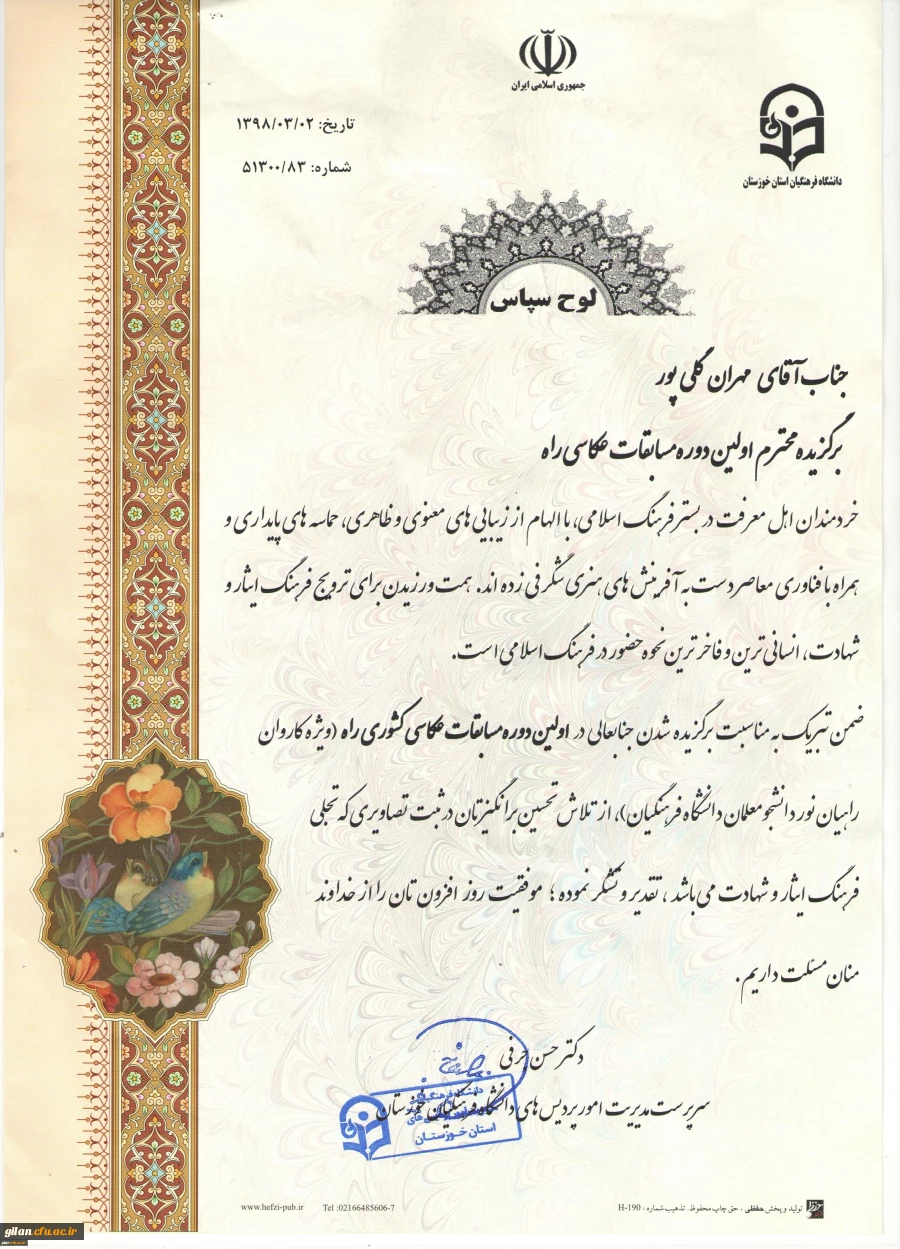 جمهوری اسلامی ایران
دانشگاه فرهنگیان استان خوزستان
تاریخ: ۱۳۹۸/۰۳/۰۲
شماره: ۵۱۳۰۰/۸۳
لوح سپاس
جناب آقای مهران گلی پور
برگزیده محترم اولین دوره مسابقات عکاسی راه
خردمندان اهل معرفت در بستر فرهنگ اسلامی، با الهام از زیبایی های معنوی و ظاهری، حماسه های پایداری و
همراه با فناوری معاصر دست به آفرینش های هنری شگرفی زده اند. همت ورزیدن برای ترویج فرهنگ ایثار و
شهادت، انسانی ترین و فاخرترین نحوه حضور در فرهنگ اسلامی است.
ضمن تبریک به مناسبت برگزیده شدن جنابعالی در اولین دوره مسابقات عکاسی کشوری راه (ویژه کاروان
راهیان نور دانشجو معلمان دانشگاه فرهنگیان)، از تلاش تحسین برانگیزتان در ثبت تصاویری که تجلی
فرهنگ ایثار و شهادت می باشد، تقدیر و تشکر نموده؛ موفقیت روز افزون تان را از خداوند
منان مسئلت داریم.
دکتر حسن حرفی
سرپرست مدیریت امور پردیس های دانشگاه فرهنگیان خوزستان
دانشگاه فرهنگیان
استان خوزستان
تولید و پخش حفظی ، حق چاپ محفوظ. تذهیب شماره : H-190
Tel :02166485606-7
www.hefzi-pub.ir
gilan.cfu.ac.ir